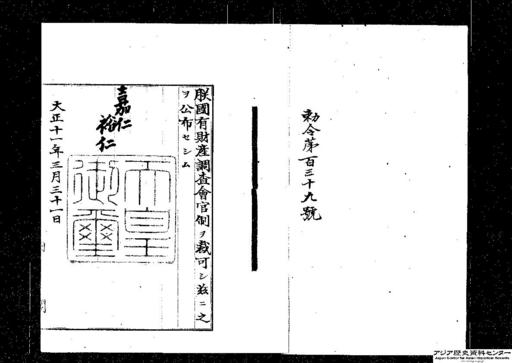 勅令第百三十九號
朕國有財產調査會官制ヲ裁可シ茲ニ之
ヲ公布セシム
嘉仁
裕仁
天皇御璽
大正十一年三月三十一日
アジア歴史資料センター
Japan Center for Asian Historical Records